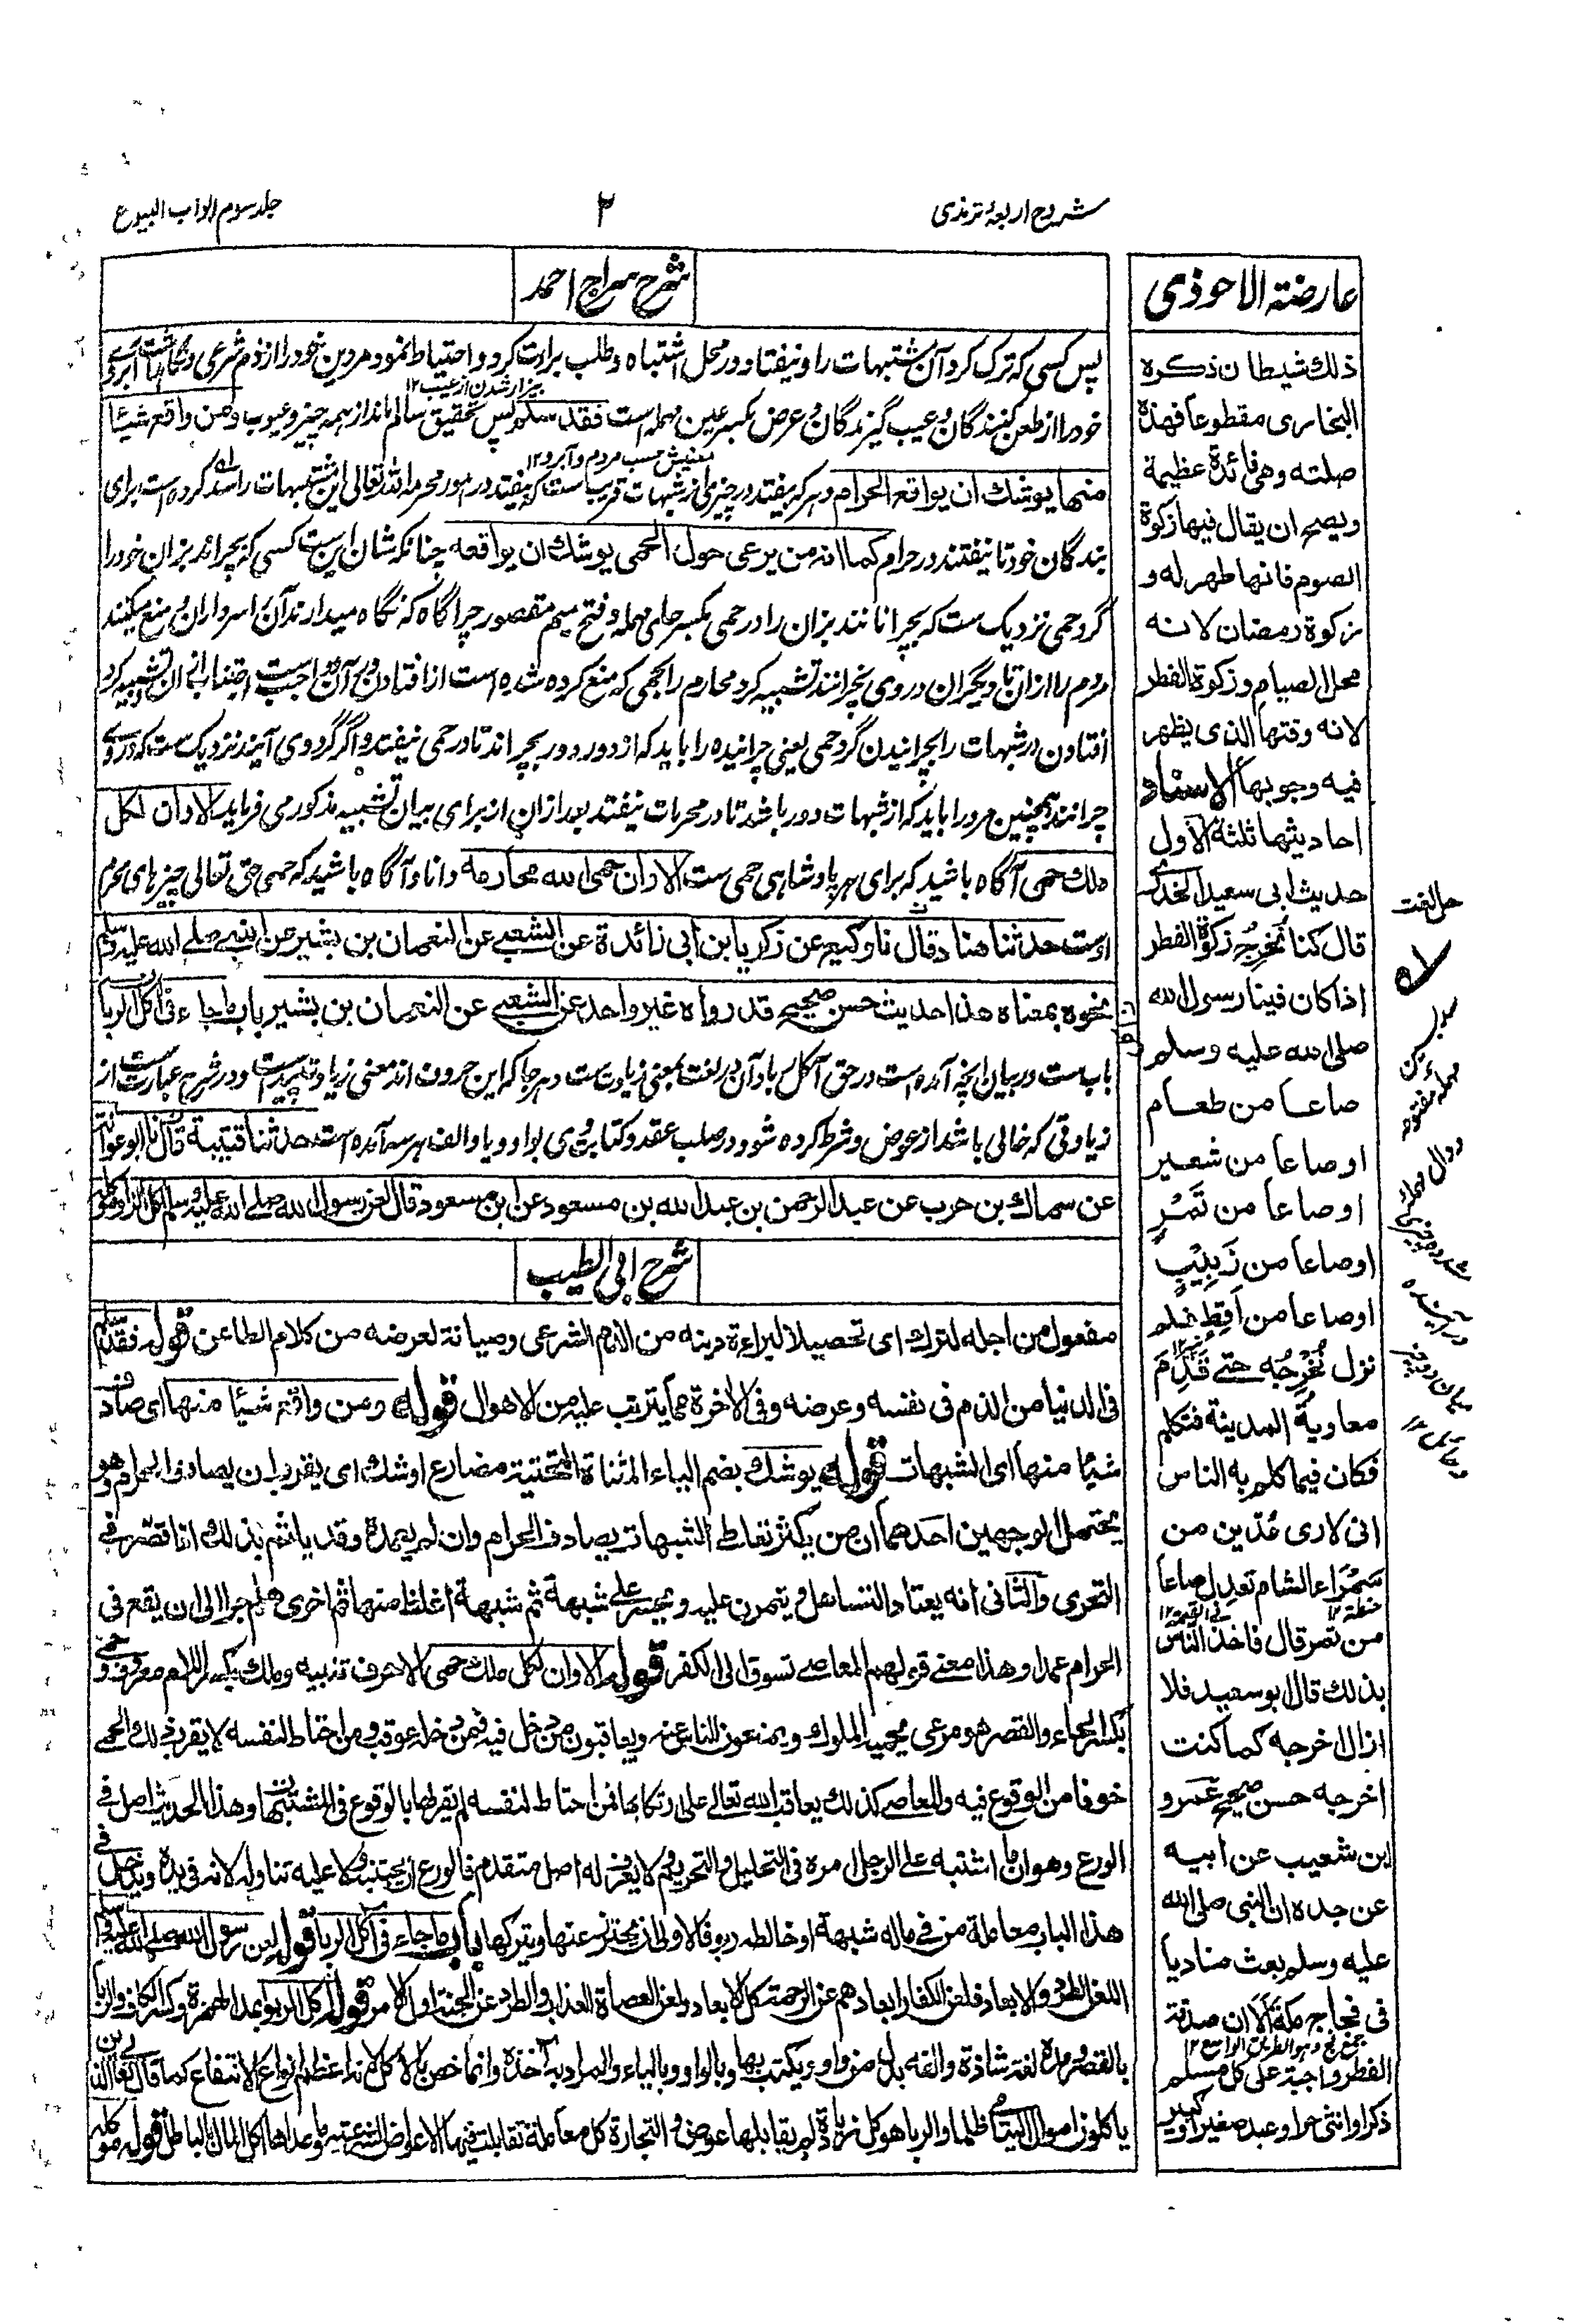 شروح اربعهٔ ترمذی
۲
جلد سوم ابواب البیوع
عارضة الاحوذی
ذلك شيطان ذكره
البخاری مقطوعا فهذه
صلته وهی فائدة عظيمة
ويصح ان يقال فيها زكوة
الصوم فانها طهر له و
زكوة رمضان لانه
محل الصيام وزكوة الفطر
لانه وقتها الذی يظهر
فيه وجوبها الاسناد
احاديثها ثلثة الاول
حديث ابی سعيد الخدری
قال كنا نُخرِجُ زكوة الفطر
اذا كان فينا رسول الله
صلى الله عليه وسلم
صاعا من طعام
او صاعا من شعير
او صاعا من تَمْرٍ
او صاعا من زَبِيْبٍ
او صاعا من اَقِطٍ فلم
نزل نُخْرِجُه حتى قَدِمَ
معاويةُ المدينة فتكلم
فكان فيما كلم به الناس
انی لاری مُدّين من
سَمْرَاء الشام تَعْدِل صاعا
من تمر قال فاخذ الناس
بذلك قال ابو سعيد فلا
ازال اخرجه كما كنت
اخرجه حسن صحيح عمرو
ابن شعيب عن ابيه
عن جده ان النبی صلى الله
عليه وسلم بعث مناديا
فی فجاج مكة اَلَا ان صدقة
جمع فج وهو الطريق الواسع ١٢
الفطر واجبة على كل مسلم
ذكر او انثى حر او عبد صغير او كبير
حل لغت
شرح سراج احمد
پس کسی که ترک کرد آن مشتبهات را و نیفتاد در محل اشتباه و طلب براءت کرد و احتیاط نمود مر دین خود را از ذم شرعی و نگاهداشت آبروی
بیزار شدن از عیب ١٢
خود را از طعن کنندگان و عیب گیرندگان و عرض بکسر عین مهمله است فقد سلم پس تحقیق سالم ماند از همه چیز و عیوب ومن واقع شيئا
منها يوشك ان يواقع الحرام و هر که بیفتد در چیزی از شبهات قریب ست که بیفتد در امور محرمه الله تعالی این مشتبهات را سد کرده است برای
بندگان خود تا نیفتند در حرام كما انه من يرعى حول الحمى يوشك ان يواقعه چنانکه شان این ست کسی که بچراند بزان خود را
گرد حمی نزدیک ست که بچرانانند بزان را در حمی بکسر حای مهمله و فتح میم مقصور چراگاه که نگاه میدارند آن را سرداران و منع میکنند
مردم را از آن تا دیگران در وی نچرانند تشبیه کرد محارم را بحمی که منع کرده شده است از افتادن در آن و واجب است اجتناب از آن و تشبیه کرد
افتادن در شبهات را بچرانیدن گرد حمی یعنی چراننده را باید که از دور دور بچراند تا در حمی نیفتد و اگر گرد وی آیند نزدیک ست که در وی
چرانند همچنین مرد را باید که از شبهات دور باشد تا در محرمات نیفتد بعد از آن از برای بیان تشبیه مذکور می فرماید الا وان لكل
ملك حمى آگاه باشید که برای هر پادشاهی حمی ست الا وان حمى الله محارمه و دانا و آگاه باشید که حمی حق تعالی چیزهای محرم
اوست حدثنا هناد قال نا وكيع عن زكريا بن ابی زائدة عن الشعبی عن النعمان بن بشير عن النبی صلى الله عليه وسلم
نحوه بمعناه هذا حديث حسن صحيح قد رواه غير واحد عن الشعبی عن النعمان بن بشير باب ما جاء فی اكل الربا
باب ست در بیان آنچه آمده است در حق آکل ربا و آن در لغت بمعنی زیادت ست و هر جا که این حروف اند معنی زیاده تبدیر ست و در شرع عبارت ست از
زیادتی که خالی باشد از عوض و شرط کرده شود در صلب عقد و کتابت وی بواو و یا و الف هر سه آمده است حدثنا قتيبة قال نا ابو عوانة
عن سماك بن حرب عن عبد الرحمن بن عبد الله بن مسعود عن ابن مسعود قال لعن رسول الله صلى الله عليه وسلم اكل الربا وموكله
شرح ابی الطيب
مفعول من اجله لترك ای تحصيلا لبراءة دينه من الذم الشرعی وصيانة لعرضه من كلام الطاعن قوله فقد سلم
فی الدنيا من الذم فی نفسه وعرضه وفی الاخرة مما يترتب عليه من الاهوال قوله ومن واقع شيئا منها ای صادف
شيئا منها ای الشبهات قوله يوشك بضم الياء المثناة التحتية مضارع اوشك ای يقرب ان يصادف الحرام وهو
يحتمل الوجهين احدهما ان من يكثر تعاطی الشبهات يصادف الحرام وان لم يعمده وقد ياثم بذلك اذا قصر فی
التحری والثانی انه يعتاد التساهل ويتمرن عليه ويجسر على شبهة ثم شبهة اغلظ منها ثم اخرى هلم جرا الى ان يقع فی
الحرام عمدا وهذا معنى قولهم المعاصی تسوق الى الكفر قوله الا وان لكل ملك حمى الا حرف تنبيه وملك بكسر اللام معروف وحمى
بكسر الحاء والقصر هو مرعى يحميه الملوك ويمنعون الناس عنه ويعاقبون من دخل فيه فمن دخله عوقب ومن احتاط لنفسه لا يقرب ذلك الحمى
خوفا من الوقوع فيه والمعاصی كذلك يعاقب الله تعالى على ارتكابها فمن احتاط لنفسه لم يقربها بالوقوع فی المشتبهات وهذا الحديث اصل فی
الورع وهو ان ما اشتبه على الرجل امره فی التحليل والتحريم ولا يعرف له اصل متقدم فالورع ان يجتنبه ولا عليه تناوله لانه فی يده ويدخل فی
هذا الباب معاملة من فی ماله شبهة او خالطه ربو فالاولى ان يحترز عنها ويتركها باب ما جاء فی اكل الربا قوله لعن رسول الله صلى الله عليه وسلم
اللعن الطرد والابعاد فلعن الكفار ابعادهم عن الرحمة كل الابعاد ولعن العصاة العذاب والطرد عن الجنة اول الامر قوله اكل الربو بمد الهمزة وكسر الكاف والربا
بالقصر ومده لغة شاذة والفه بدل من واو ويكتب بها وبالواو وبالياء والمراد به اخذه وانما خص بالاكل لانه اعظم انواع الانتفاع كما قال تعالى ان الذين
ياكلون اموال اليتامى ظلما والربا هو كل زيادة لم يقابلها عوض والتجارة كل معاملة تقابلت فيها الاعواض الشرعية وما عداها اكل المال بالباطل قوله موكله